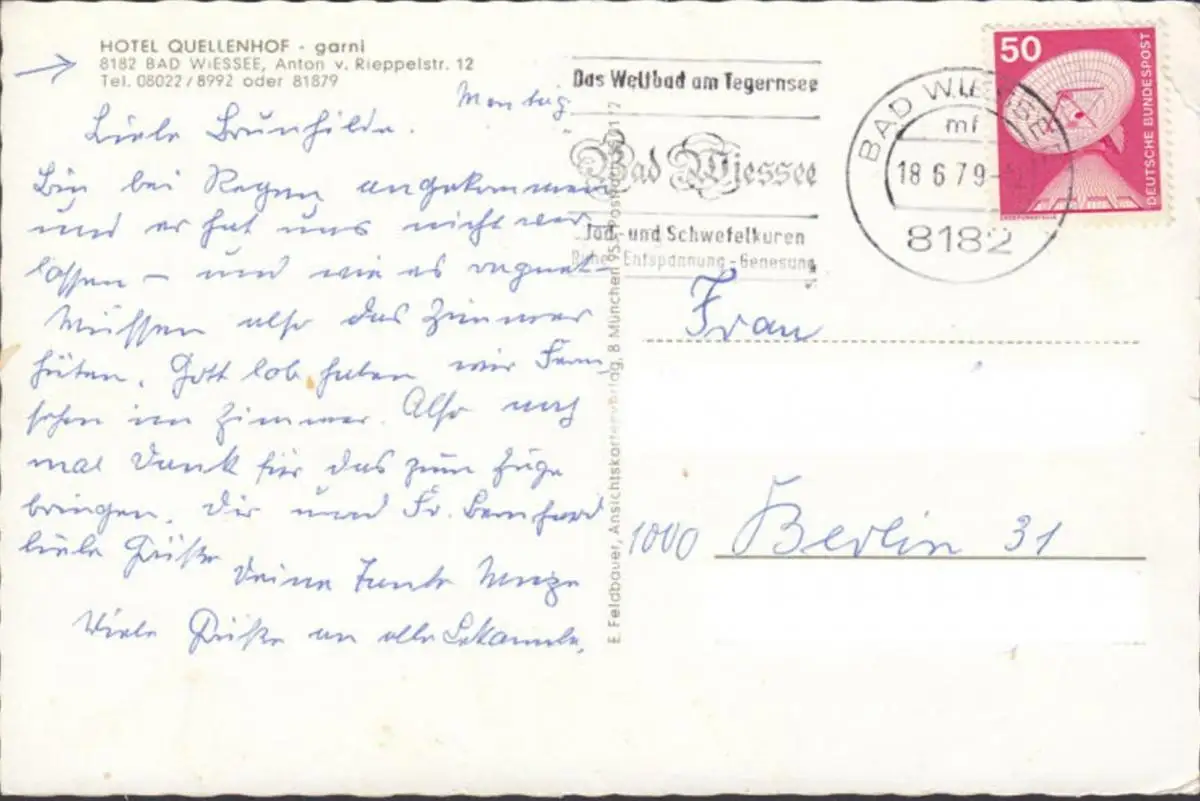 HOTEL QUELLENHOF - garni
8182 BAD WIESSEE, Anton v. Rieppelstr. 12
Tel. 08022/8992 oder 81879
Montag
Liebe Brunhilde.
Bin bei Regen angekommen
und er hat uns nicht ver-
lassen – und wie es regnet.
Müssen also das Zimmer
hüten. Gott lob haben wir Fern-
sehen im Zimmer. Also noch
mal Dank für das zum Zuge
bringen. Dir und Fr. Bernhard
liebe Grüße
Deine Tante
Viele Grüße an alle Bekannte.
Das Weltbad am Tegernsee
Bad Wiessee
Jod- und Schwefelkuren
Ruhe - Entspannung - Genesung
BAD WIESSEE
mf
18.6.79
8182
50
DEUTSCHE BUNDESPOST
E. Feldbauer, Ansichtskartenverlag, 8 München 95,
Frau
1000 Berlin 31